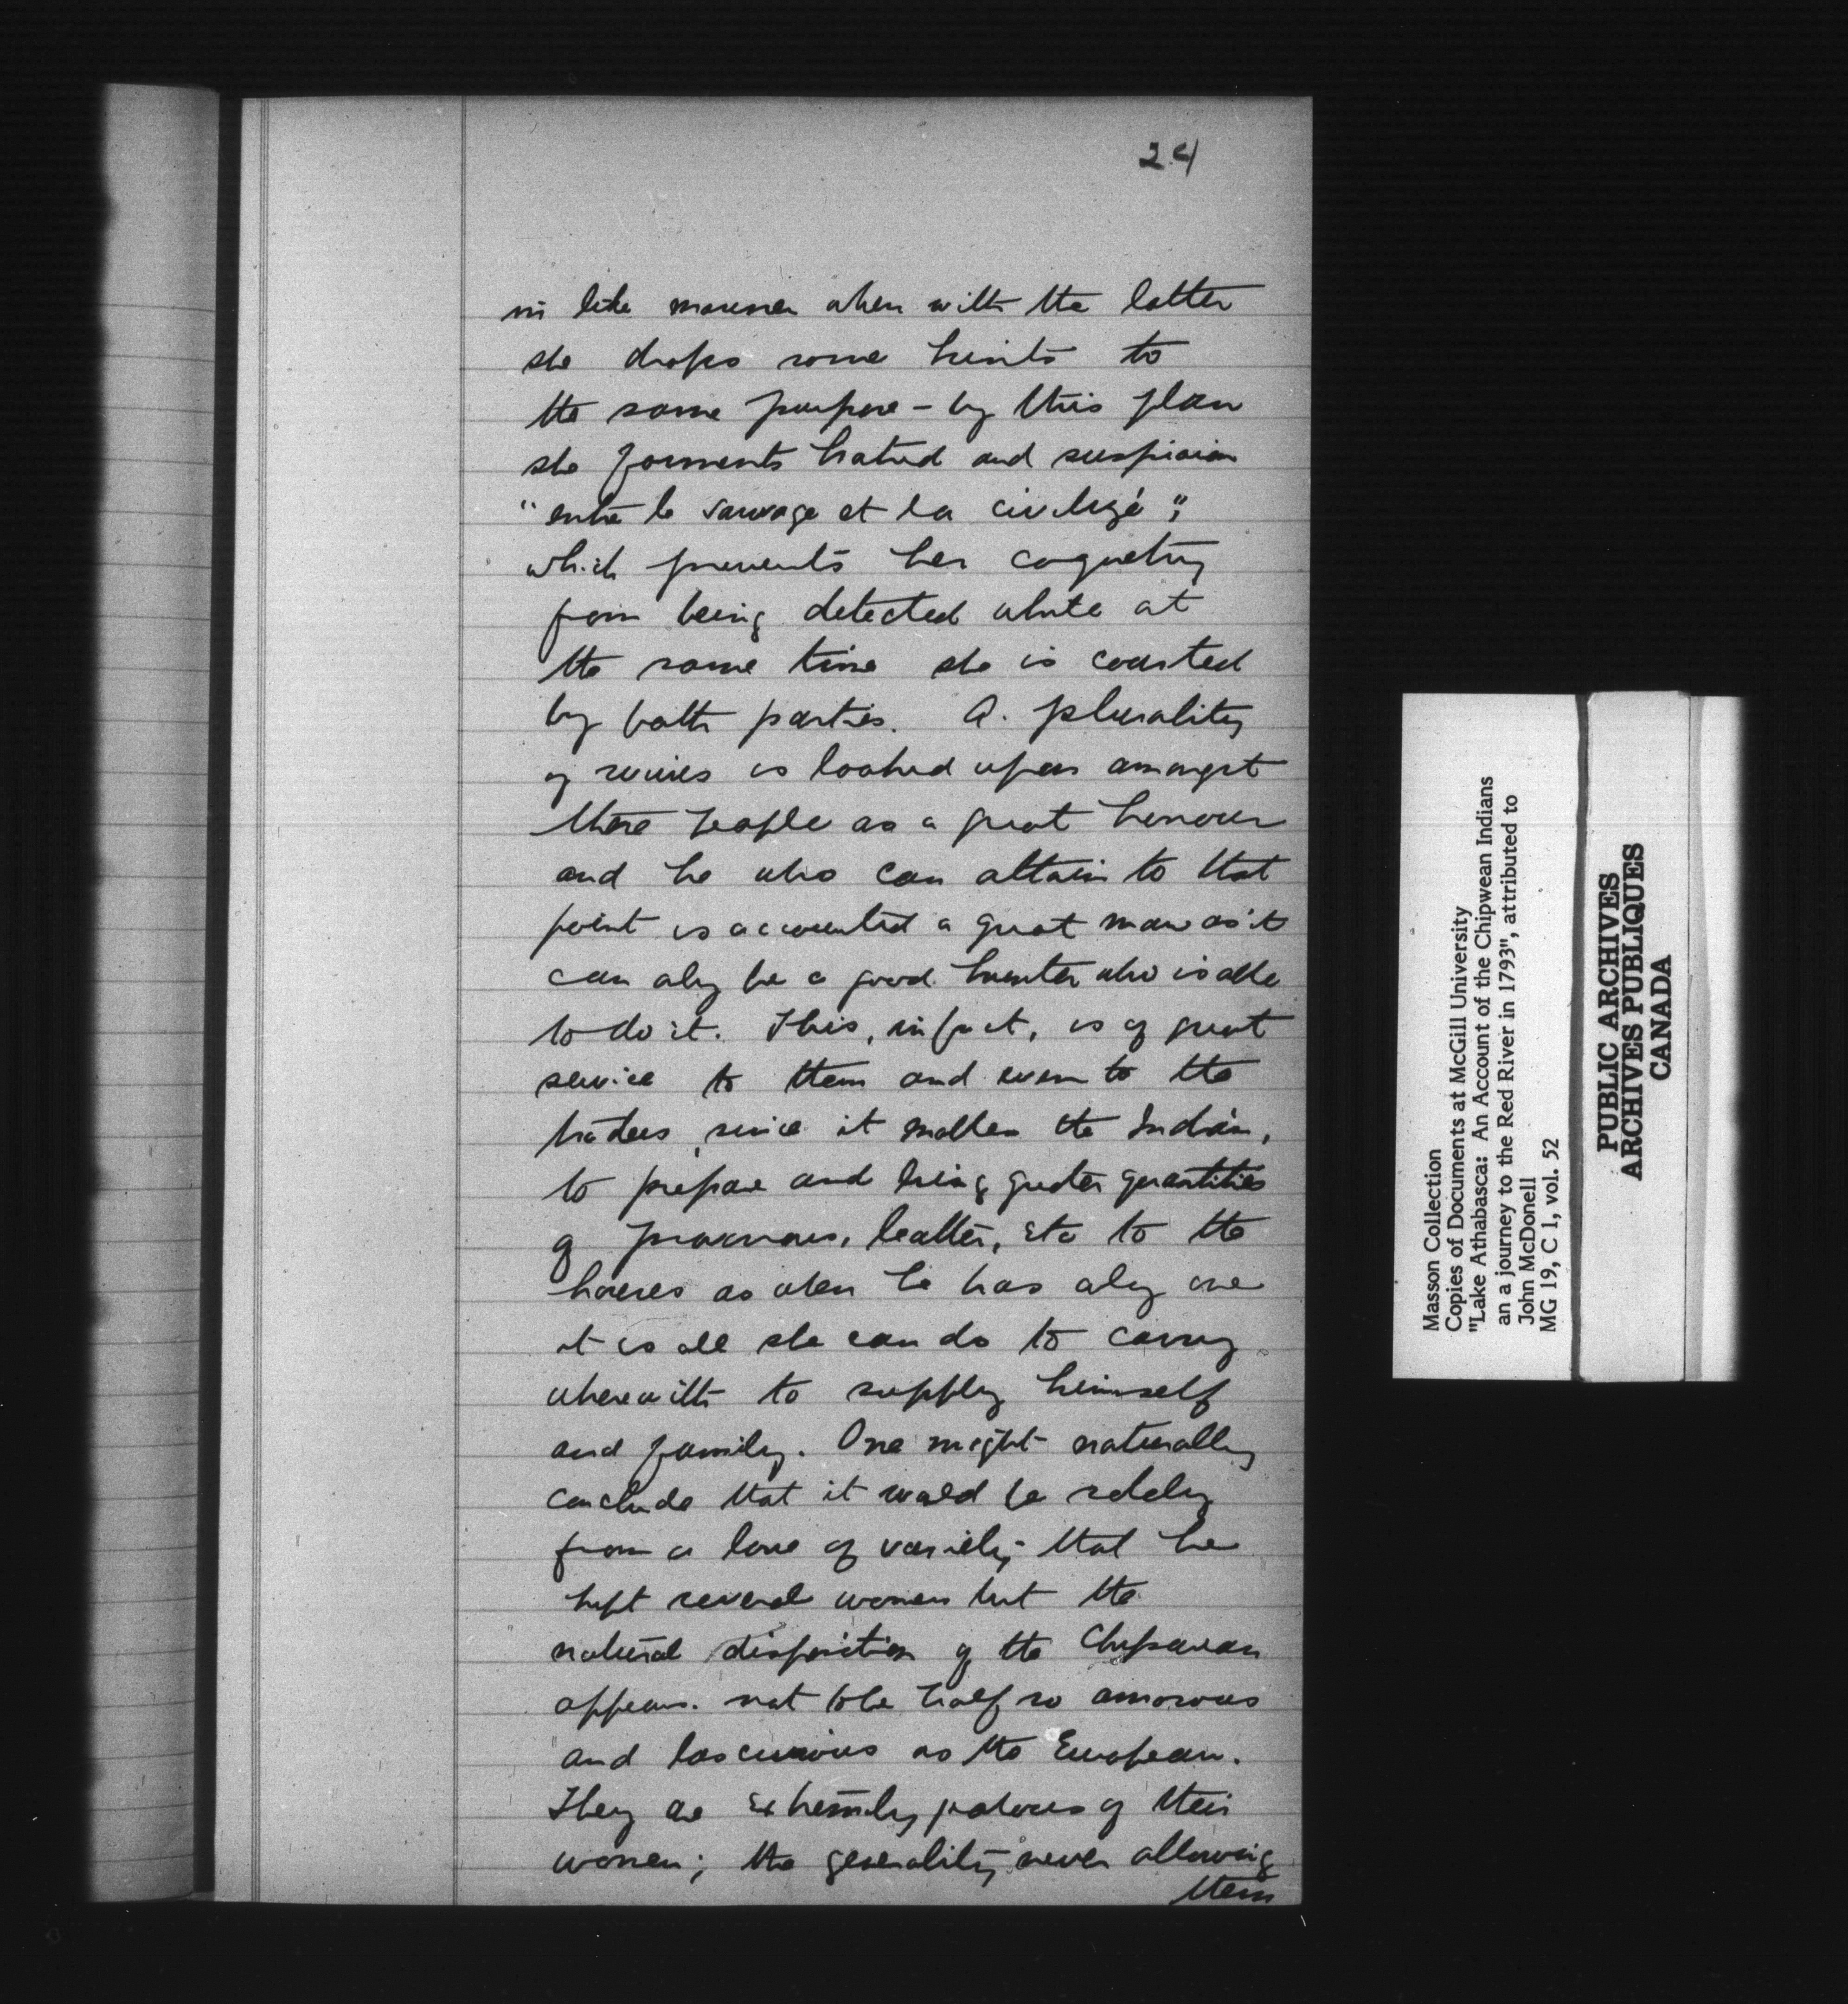 24
in like manner when with the latter
she drops some hints to
the same purpose - by this plan
she foments hatred and suspicion
"entre le sauvage et la civilizé";
which prevents her coquetry
from being detected while at
the same time she is courted
by both parties. A plurality
of wives is looked upon amongst
these people as a great honour
and he who can attain to that
point is accounted a great man as it
can only be a good hunter who is able
to do it. This, in fact, is of great
service to them and even to the
traders, since it enables the Indian,
to prepare and bring greater quantities
of provisions, leather, etc to the
houses as when he has only one
it is all she can do to carry
wherewith to supply himself
and family. One might naturally
conclude that it would be solely
from a love of variety that he
kept several women but the
natural disposition of the Chipwean
appears not to be half so amorous
and lascivious as the European.
They are extremely jealous of their
women; the generality never allowing
them
Masson Collection
Copies of Documents at McGill University
"Lake Athabasca: An Account of the Chipwean Indians
an a journey to the Red River in 1793", attributed to
John McDonell
MG 19, C 1, vol. 52
PUBLIC ARCHIVES
ARCHIVES PUBLIQUES
CANADA